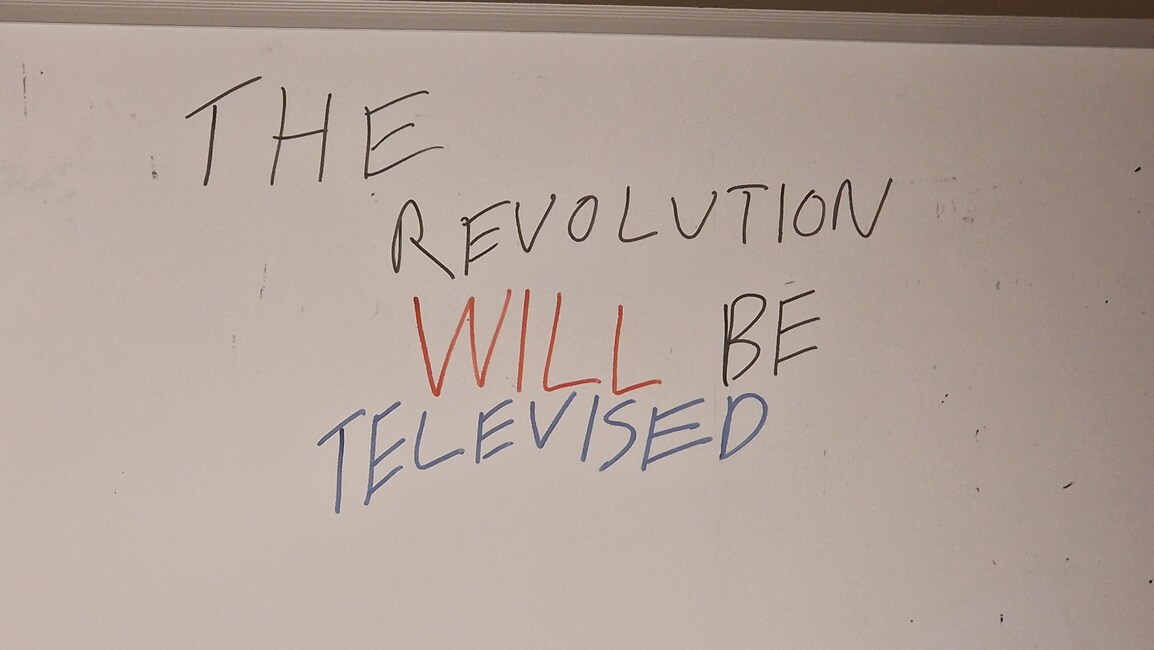 THE
REVOLUTION
WILL BE
TELEVISED